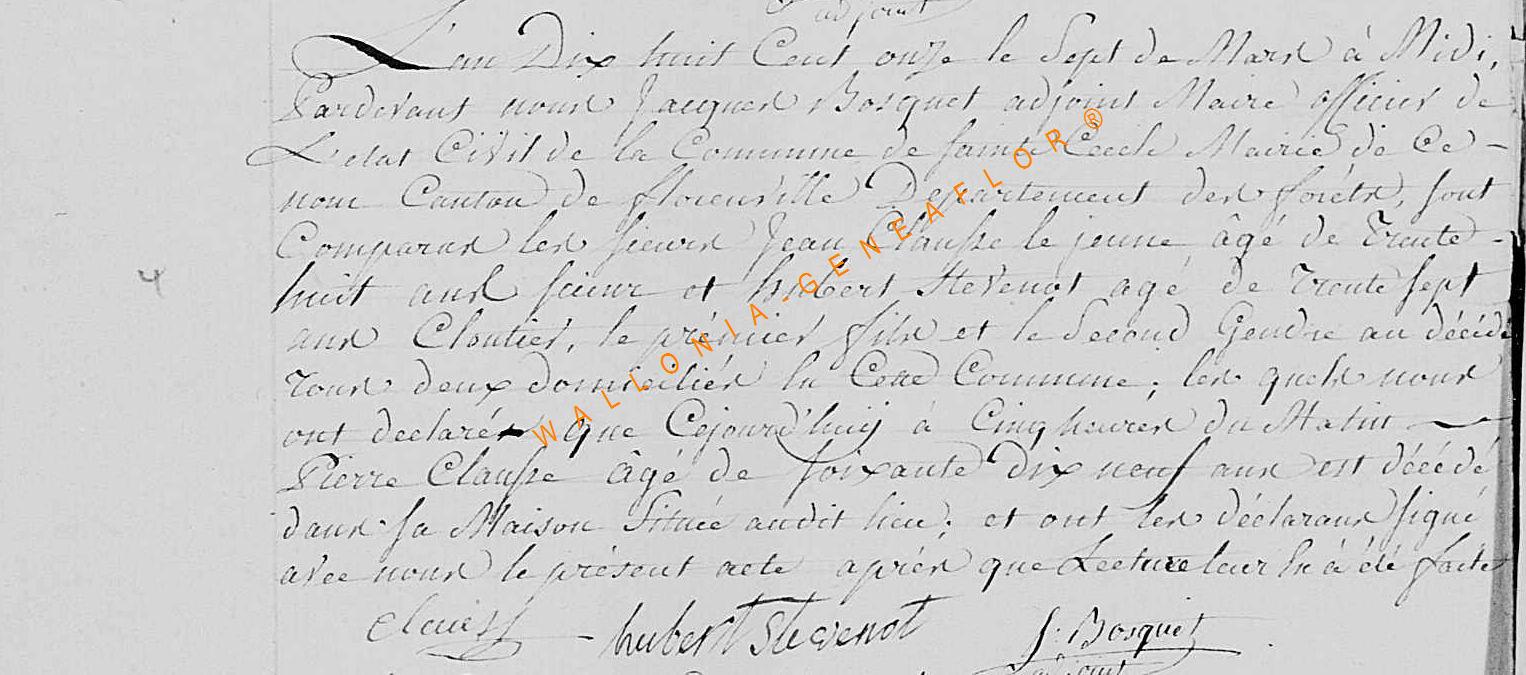 adjoint
L'an Dix huit Cent onze le Sept de Mars à Midi,
Pardevant nous Jacques Bosquet adjoint Maire officier de
L'etat Civil de la Commune de sainte Cecile Mairie de Ce -
nom Canton de florenville Departement des forêts, sont
Comparus les sieurs Jean Clausse le jeune âgé de Trente -
huit ans scieur et hubert Stevenot agé de Trente sept
ans Cloutier, le prémier fils et le Second Gendre au décédé
Tous deux domiciliés en Cette Commune; les quels nous
ont declarés que Cejourd'huij à Cinq heures du Matin
Pierre Clausse âgé de soixante Dix neuf ans est décédé
dans sa Maison Située audit lieu; et ont les déclarans signé
avec nous le présent acte après que Lecture leur en à été faite
Clauss
hubert Stevenot
J: Bosquet
adjoint
4
WALLONIA-GENEAFLOR®